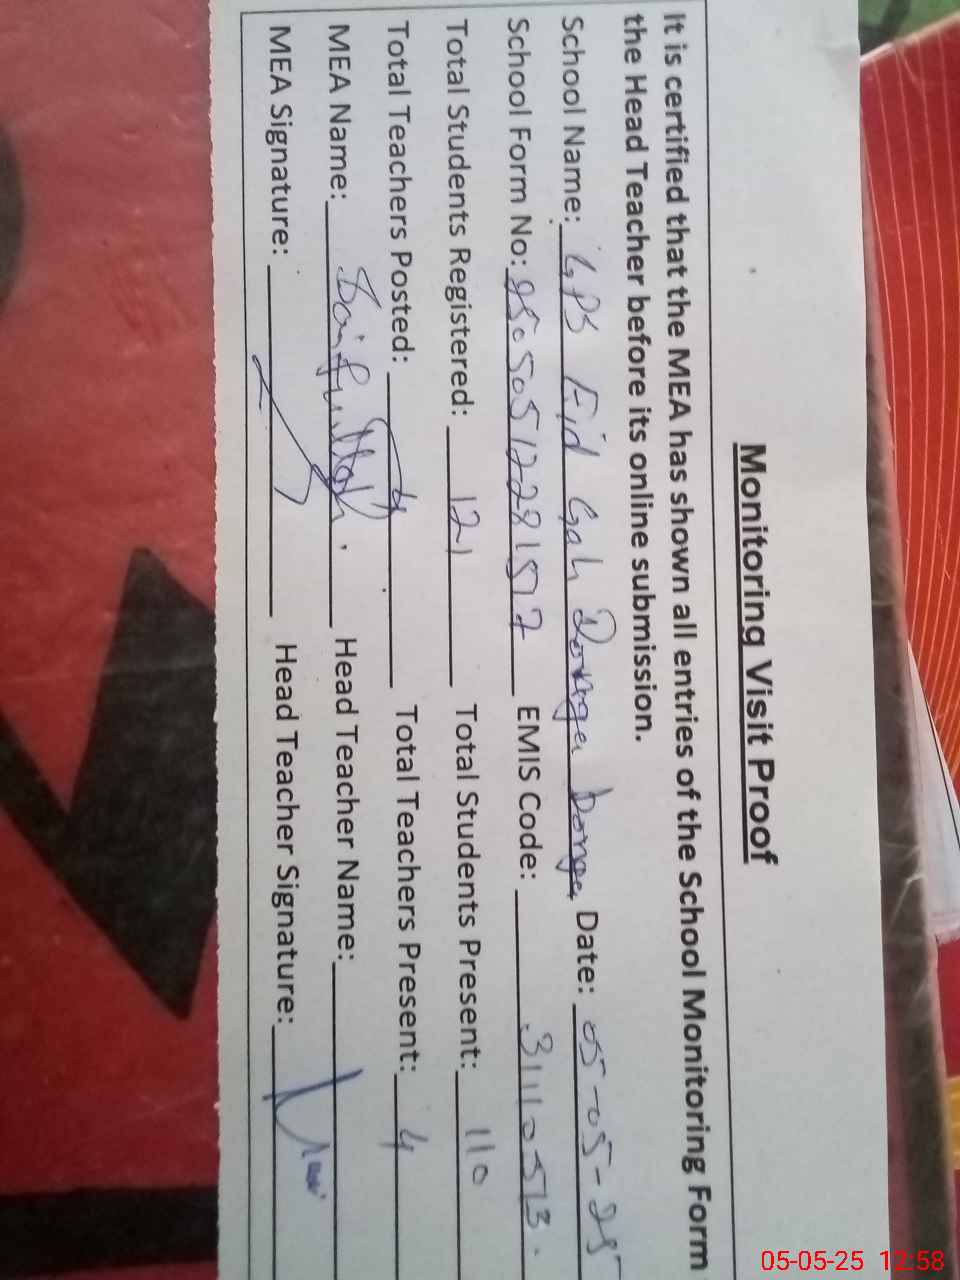 Monitoring Visit Proof
It is certified that the MEA has shown all entries of the School Monitoring Form
the Head Teacher before its online submission.
School Name: GPS Eid Gah Donga Donga Date: 05-05-25
School Form No: EMIS Code: 31110513
Total Students Registered: 121 Total Students Present: 110
Total Teachers Posted: 4 Total Teachers Present: 4
MEA Name: Head Teacher Name:
MEA Signature: Head Teacher Signature:
05-05-25 12:58